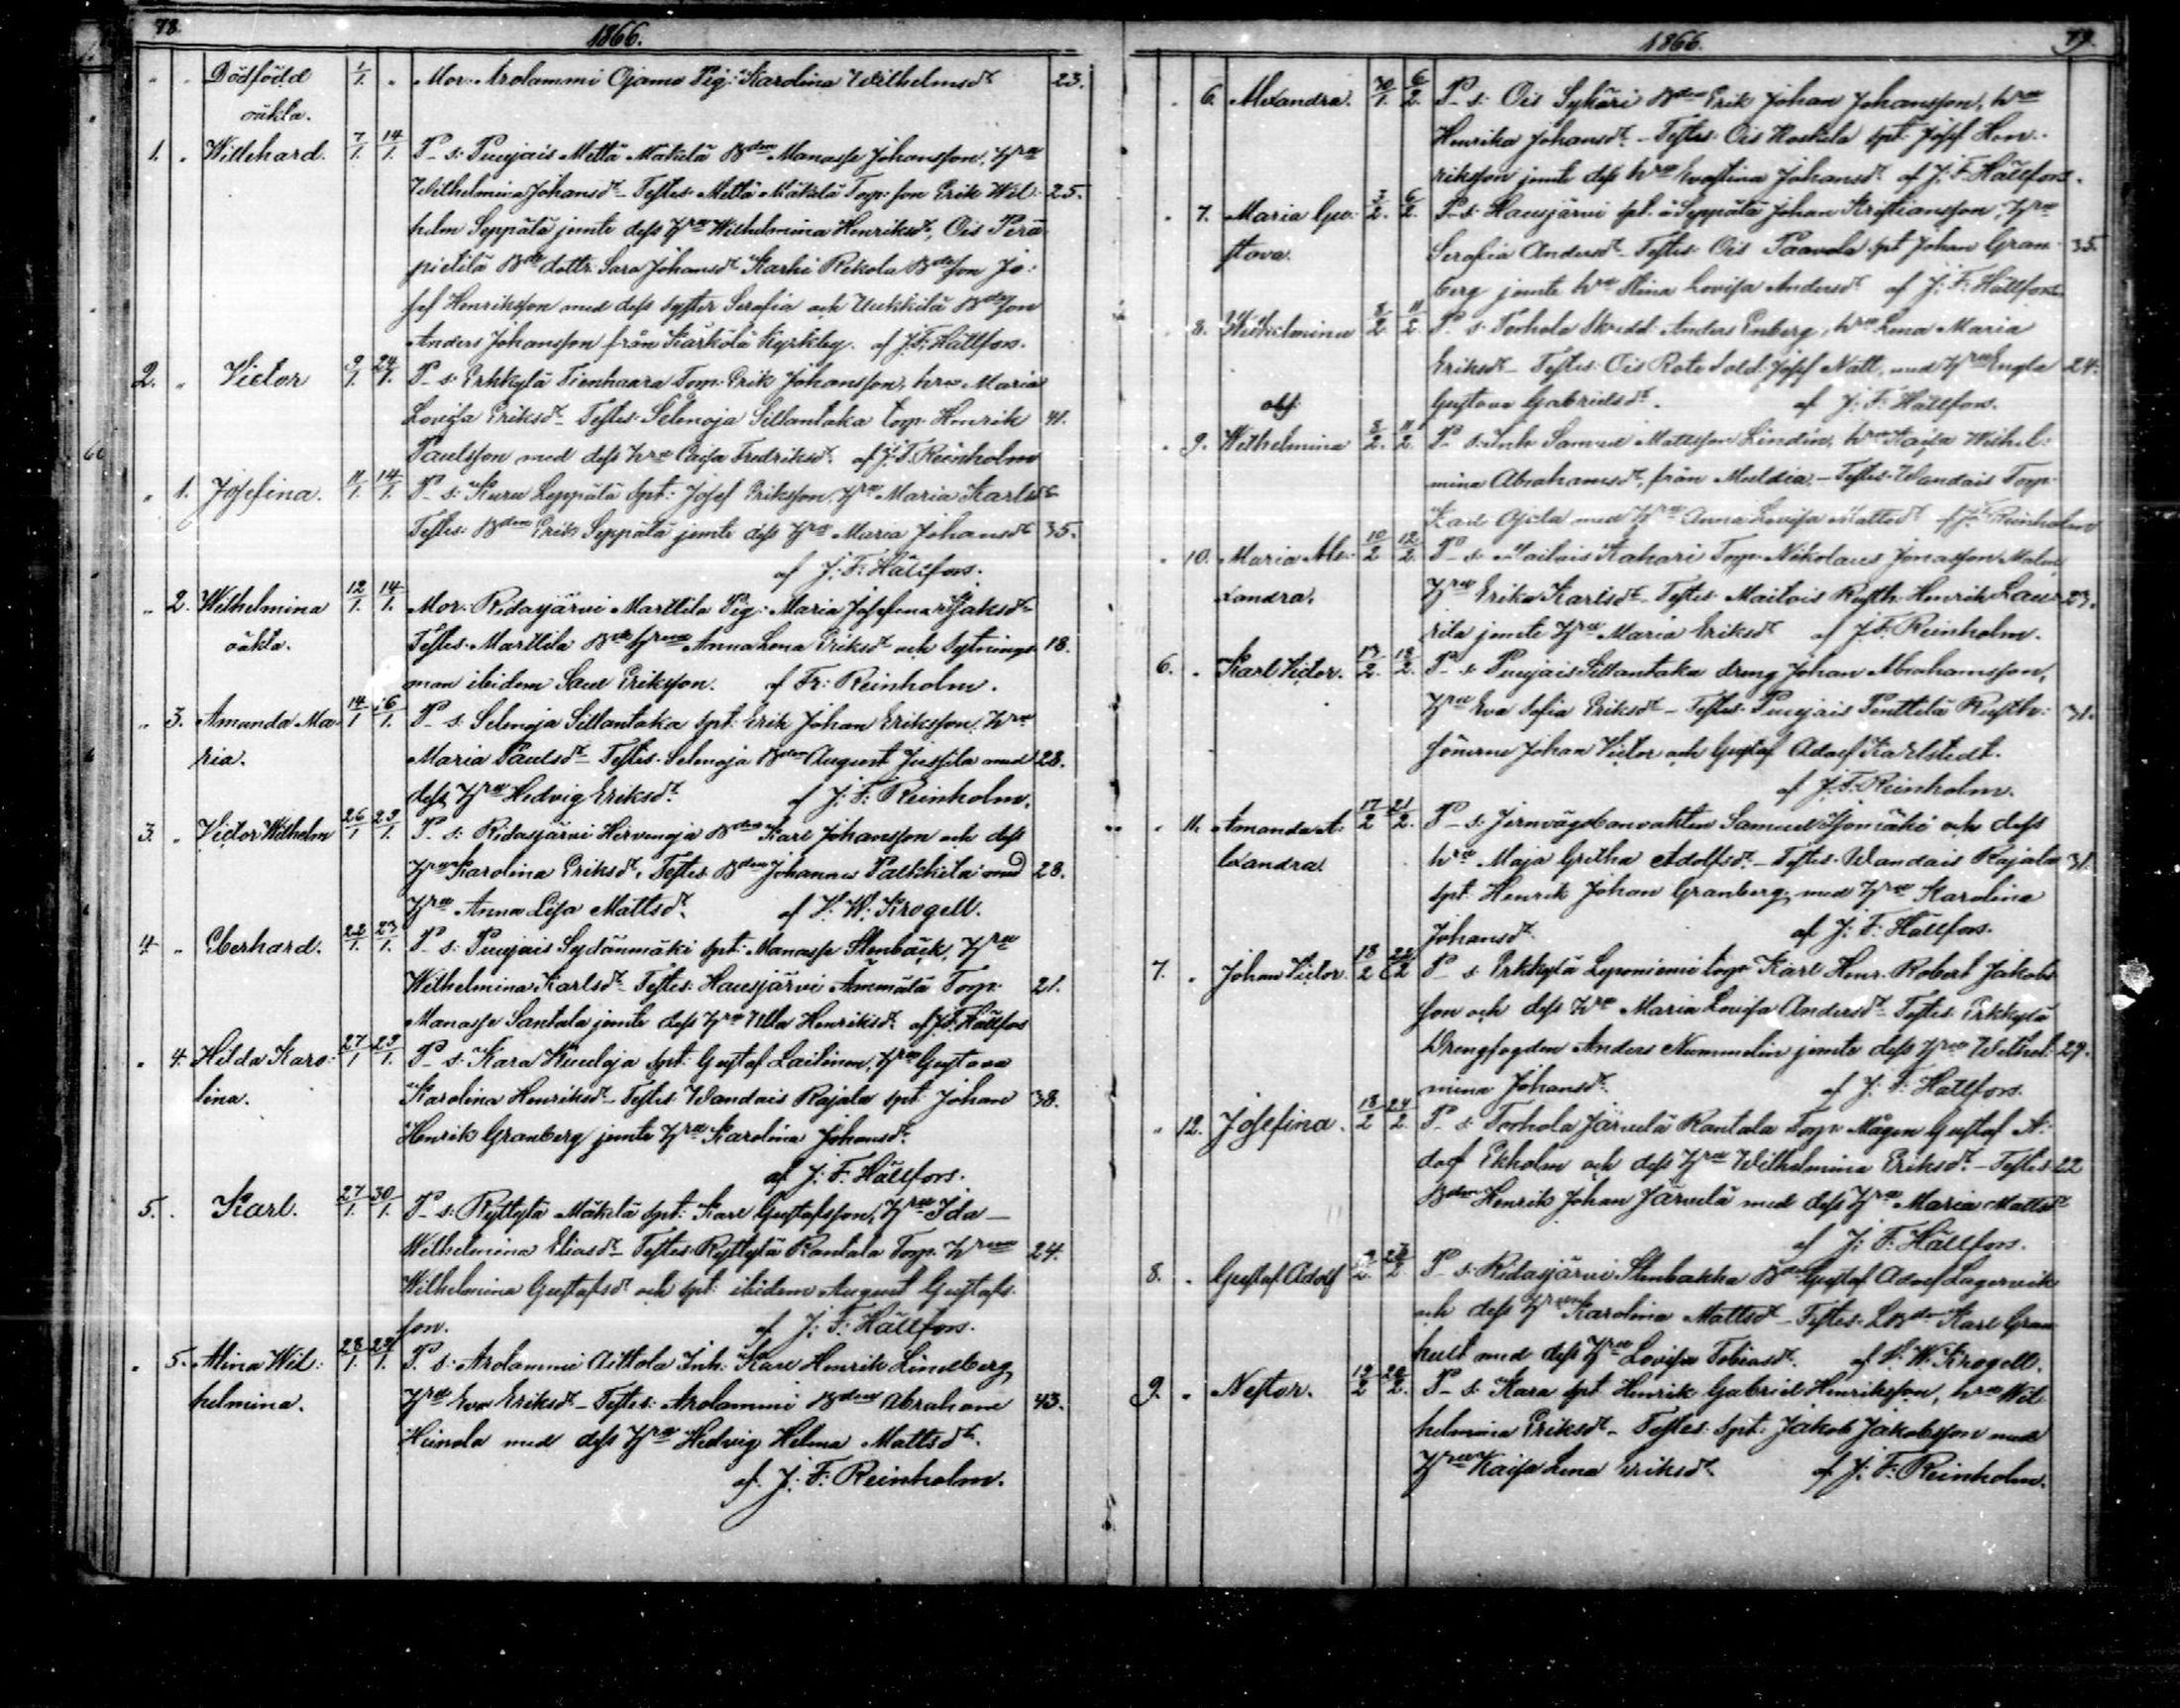 78.
1866.
" " Dödfödd 1/1. " Mor: Arolammi Ojamo Pig: Karolina Wilhelmsdr 23.
oäkta.
1. " Willehard. 7/1. 14/1. P_s: Puujais Mettä Mäkelä Bdn Manasse Johansson, Hru
Wilhelmina Johansdr _ Testes: Mettä Mäkelä Torp: son Erik Wil: 25.
helm Seppälä jemte dess Hru Wilhelmina Henriksdr, Ois Perä
pietilä Bde dottr: Sara Johansdr Karhi Rekola Bde son Jo:
sef Henriksson med dess syster Serafia och Uukkilä Bde son
Anders Johansson från Kärkölä Kyrkby. af J: F: Hällfors.
2. " Victor 9/1. 24/1. P_s: Erkkylä Tienhaara Torp: Erik Johansson, hru Maria
Lovisa Eriksdr _ Testes: Selenoja Sillantaka torp: Henrik 41.
Paulsson med dess hru Caisa Fredriksdr. af J: F: Reinholm
" 1. Josefina. 11/1. 14/1. P_s: Kuru Leppälä Spt: Josef Eriksson, Hru Maria Karlsdr
Testes: Bdn Erik Seppälä jemte dess Hru Maria Johansdr 35.
af J: F: Hällfors.
" 2. Wilhelmina 12/1. 14/1. Mor: Ridasjärvi Marttila Pig: Maria Josefina Isaksdr
oäkta. Testes: Marttila Bde hru Anna Lena Eriksdr och Sytnings 18.
man ibidem Saul Eriksson. af Fr: Reinholm.
" 3. Amanda Ma 14/1 16/1. P_s: Selenoja Sillantaka Spt: Erik Johan Eriksson, Hru
ria. Maria Paulsdr _ Testes: Selenoja Bdn August Jussila med 28.
dess Hru Hedvig Eriksdr. af J: F: Reinholm.
3. " Victor Wilhelm 26/1 29/1. P_s: Ridasjärvi Hirvenoja Bdn Karl Johansson och dess
Hru Karolina Eriksdr, Testes Bdn Johannes Palkkila med 28.
Hru Anna Lisa Mattsdr. af V: W: Krogell.
4 " Eberhard. 22/1. 23/1. P_s: Puujais Sydänmäki Spt: Manasse Stenbäck, Hru
Wilhelmina Karlsdr _ Testes: Hausjärvi Ämmälä Torp: 21.
Manasse Santala jemte dess Hru Ulla Henriksdr. af J: F: Hällfors
" 4. Hilda Karo: 27/1 29/1. P_s: Kara Kuuloja Spt: Gustaf Lailinen, Hru Gustava
lina. Karolina Henriksdr _ Testes: Wandais Rajala Spt: Johan 38.
Henrik Granberg jemte Hru Karolina Johansdr.
af J: F: Hällfors.
5. . Karl. 27/1. 30/1. P_s: Ryttylä Mäkelä Spt: Karl Gustafsson, Hru Ida _
Wilhelmina Eliasdr _ Testes: Ryttylä Rantala Torp: Hru 24.
Wilhelmina Gustafsdr och Spt: ibidem August Gustafs
son. af J: F: Hällfors.
" 5. Mina Wil: 28/1. 29/1. P_s: Arolammi Aittola Inh: Karl Henrik Lindberg
helmina. Hru Eva Eriksdr _ Testes: Arolammi Bdn Abraham 43.
Heinola med dess Hru Hedvig Helma Mattsdr.
af J: F: Reinholm.
1866. 79.
" 6. Alexandra. 30/1. 6/2. P_s: Ois Sykäri Bdn Erik Johan Johansson, hru
Henrika Johansdr _ Testes: Ois Spt: Josef Hen:
riksson jemte dess hru Evastina Johansdr. af J: F: Hällfors.
" 7. Maria Gu: 3/2. 6/2. P_s: Hausjärvi Spt: å Seppälä Johan Kristiansson, Hru
stava. Serafia Andersdr _ Testes: Ois Paavola Spt Johan Gran 35.
berg jemte hru Stina Lovisa Andersdr. af J: F: Hällfors
" 8. Wilhelmina 8/2. 11/2. P_s: Torhola Skrädd: Anders Enberg, hru Lena Maria
Eriksdr _ Testes: Ois Rote Sold: Josef Nätt, med Hru Engla 24.
Gustava Gabrielsdr. af J: F: Hällfors.
" 9. Wilhelmina 8/2. 11/2. P_s: Inh: Samuel Mattsson Lindén, hru Kaisa Wilhel:
mina Abrahamsdr, från _ Testes: Wandais Torp:
Karl Ojala med Hru Anna Lovisa Mattsdr af J: F: Reinholm
" 10. Maria Ale: 10/2 12/2. P_s: Maitois Kahari Torp: Nikolaus Jonasson Malm
xandra. Hru Erika Karlsdr _ Testes: Maitois Rusth: Henrik Lau 23.
rila jemte Hru Maria Eriksdr af J: F: Reinholm.
6. " Karl Victor. 13/2. 18/2. P_s: Puujais Sillantaka dreng Johan Abrahamsson,
Hru Eva Sofia Eriksdr _ Testes: Puujais Penttilä Rusth: 31.
sönerne Johan Victor och Gustaf Adolf Karlstedt.
af J: F: Reinholm.
" 11. Amanda A: 17/2 21/2. P_s: Jernvägsbanvakten Samuel Isomäki och dess
lexandra. hru Maja Gretha Adolfsdr _ Testes: Wandais Rajala 31.
Spt: Henrik Johan Granberg, med Hru Karolina
Johansdr. af J: F: Hällfors.
7. " Johan Victor. 18/2 22/2 P_s: Erkkylä Leponiemi torp: Karl Henr. Robert Jakobs
son och dess Hru Maria Lovisa Andersdr Testes: Erkkylä
Drengfogden Anders Nummelin jemte dess Hru Wilhel: 29.
mina Johansdr. af J: F: Hällfors.
" 12. Josefina. 18/2 24/2. P_s: Torhola Järvelä Rantala Torp: Mågen Gustaf A:
dolf Ekholm och dess Hru Wilhelmina Eriksdr. _ Testes 22
Bdn Henrik Johan Järvelä med dess Hru Maria Mattsdr
af J: F: Hällfors.
8. " Gustaf Adolf P_s: Ridasjärvi Stenbakka Bdn Gustaf Adolf Lagervik
och dess Hru Karolina Mattsdr _ Testes: LBdn Karl Gran
hult med dess Hru Lovisa Tobiasdr. af V: W: Krogell.
9. " Nestor. 19/2 P_s: Kara Spt Henrik Gabriel Henriksson, hru Wil
helmina Eriksdr _ Testes: Spt: Jakob Jakobsson med
Hru Kaisa Lena Eriksdr. af J: F: Reinholm.